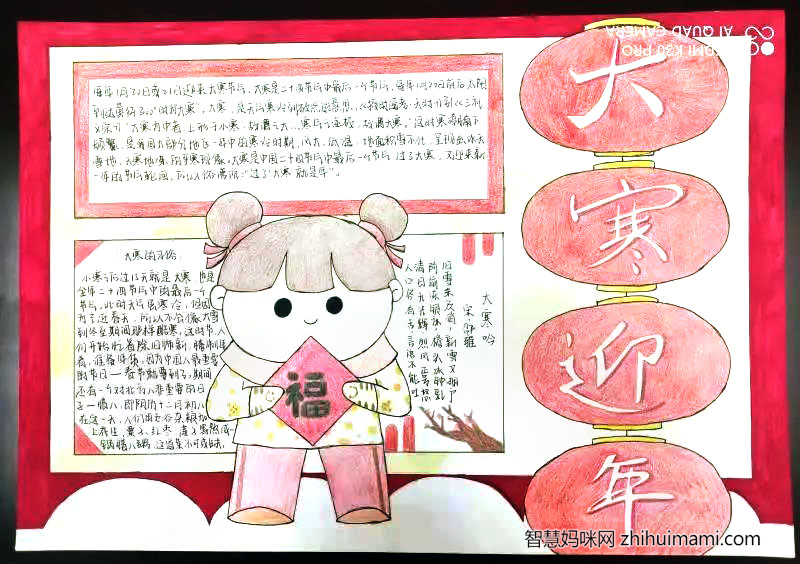 大
寒
迎
年
每年1月20日或21日迎来大寒节气，大寒是二十四节气中最后一个节气，每年1月20日前后太阳
到达黄经300°时为大寒
义宗》："大寒为中者，上形于小寒，故谓之大……寒气之逆极，故谓大寒。"这时寒潮南下
频繁，是我国大部分地区一年中的寒冷时期，风大，低温，地面积雪不化，呈现出冰天
雪地，天寒地冻的严寒景象。大寒是中国二十四节气中最后一个节气，过了大寒，又迎来新
一年的节气轮回，所以人们常说："过了大寒就是年"。
大寒的习俗
小寒之后过15天就是大寒，也是
全年二十四节气中的最后一个
节气，此时天气虽寒冷，但因
已近春天，所以不会像大雪
到冬至期间那样酷寒。这时节，人
们开始忙着除旧布新，腌制年
肴，准备年货，因为中国人最重要
的节日——春节就要到了。期间
还有一个对北方人非常重要的日
子—腊八，即阴历十二月初八
在这一天，人们用五谷杂粮加
上花生、栗子、红枣、莲子等熬成一
锅腊八粥
大寒吟
宋·邵雍
旧雪未及消，新雪又拥户
阶前冻银床，檐头冰钟乳
清日无光辉，烈风正号怒
人口各有舌，言语不能吐
福
REDMI K30 PRO
AI QUAD CAMERA
智慧妈咪网 zhihuimami.com